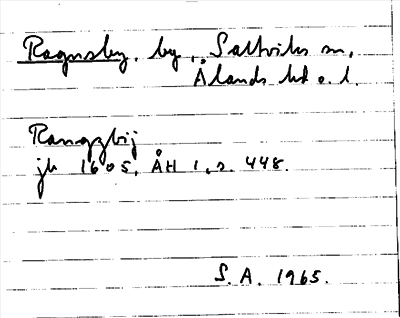 Ragnsby, by, Saltviks sn,
Ålands hd o. l.
Ranggbij
jb 1605, ÅH 1, s. 448.
S. A. 1965.